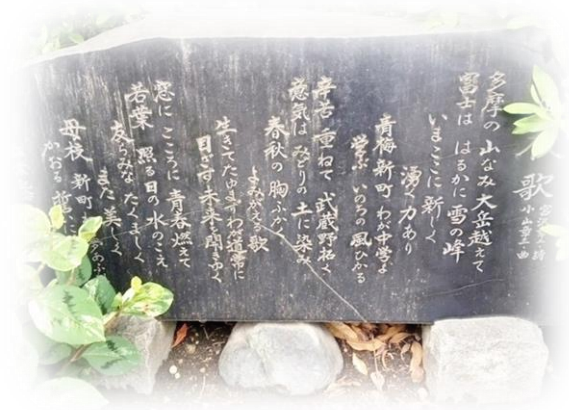 歌
多摩の 山なみ 大岳越えて
富士は はるかに 雪の峰
いまここに新しく
湧く力あり
青梅新町 わが中学よ
学ぶ いのちの 風ひかる
辛苦 重ねて 武蔵野拓く
意気は みどりの 土に染み
春秋の胸ふかく
よみがえる歌
生きてたゆまず わが道常に
目ざす未来を 開きゆく
窓に こころに 青春燃えて
若葉 照る日の 水のこえ
友らみな たくましく
また 美しく
母校 新町
かおる